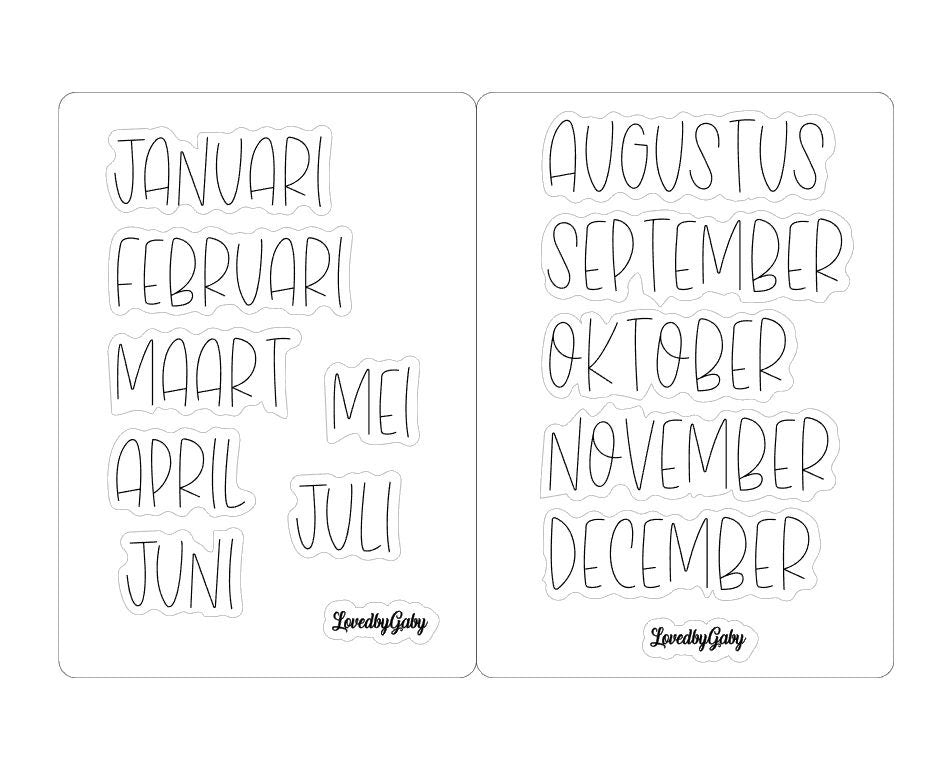 JANUARI
FEBRUARI
MAART
MEI
APRIL
JULI
JUNI
LovedbyGaby
AUGUSTUS
SEPTEMBER
OKTOBER
NOVEMBER
DECEMBER
LovedbyGaby